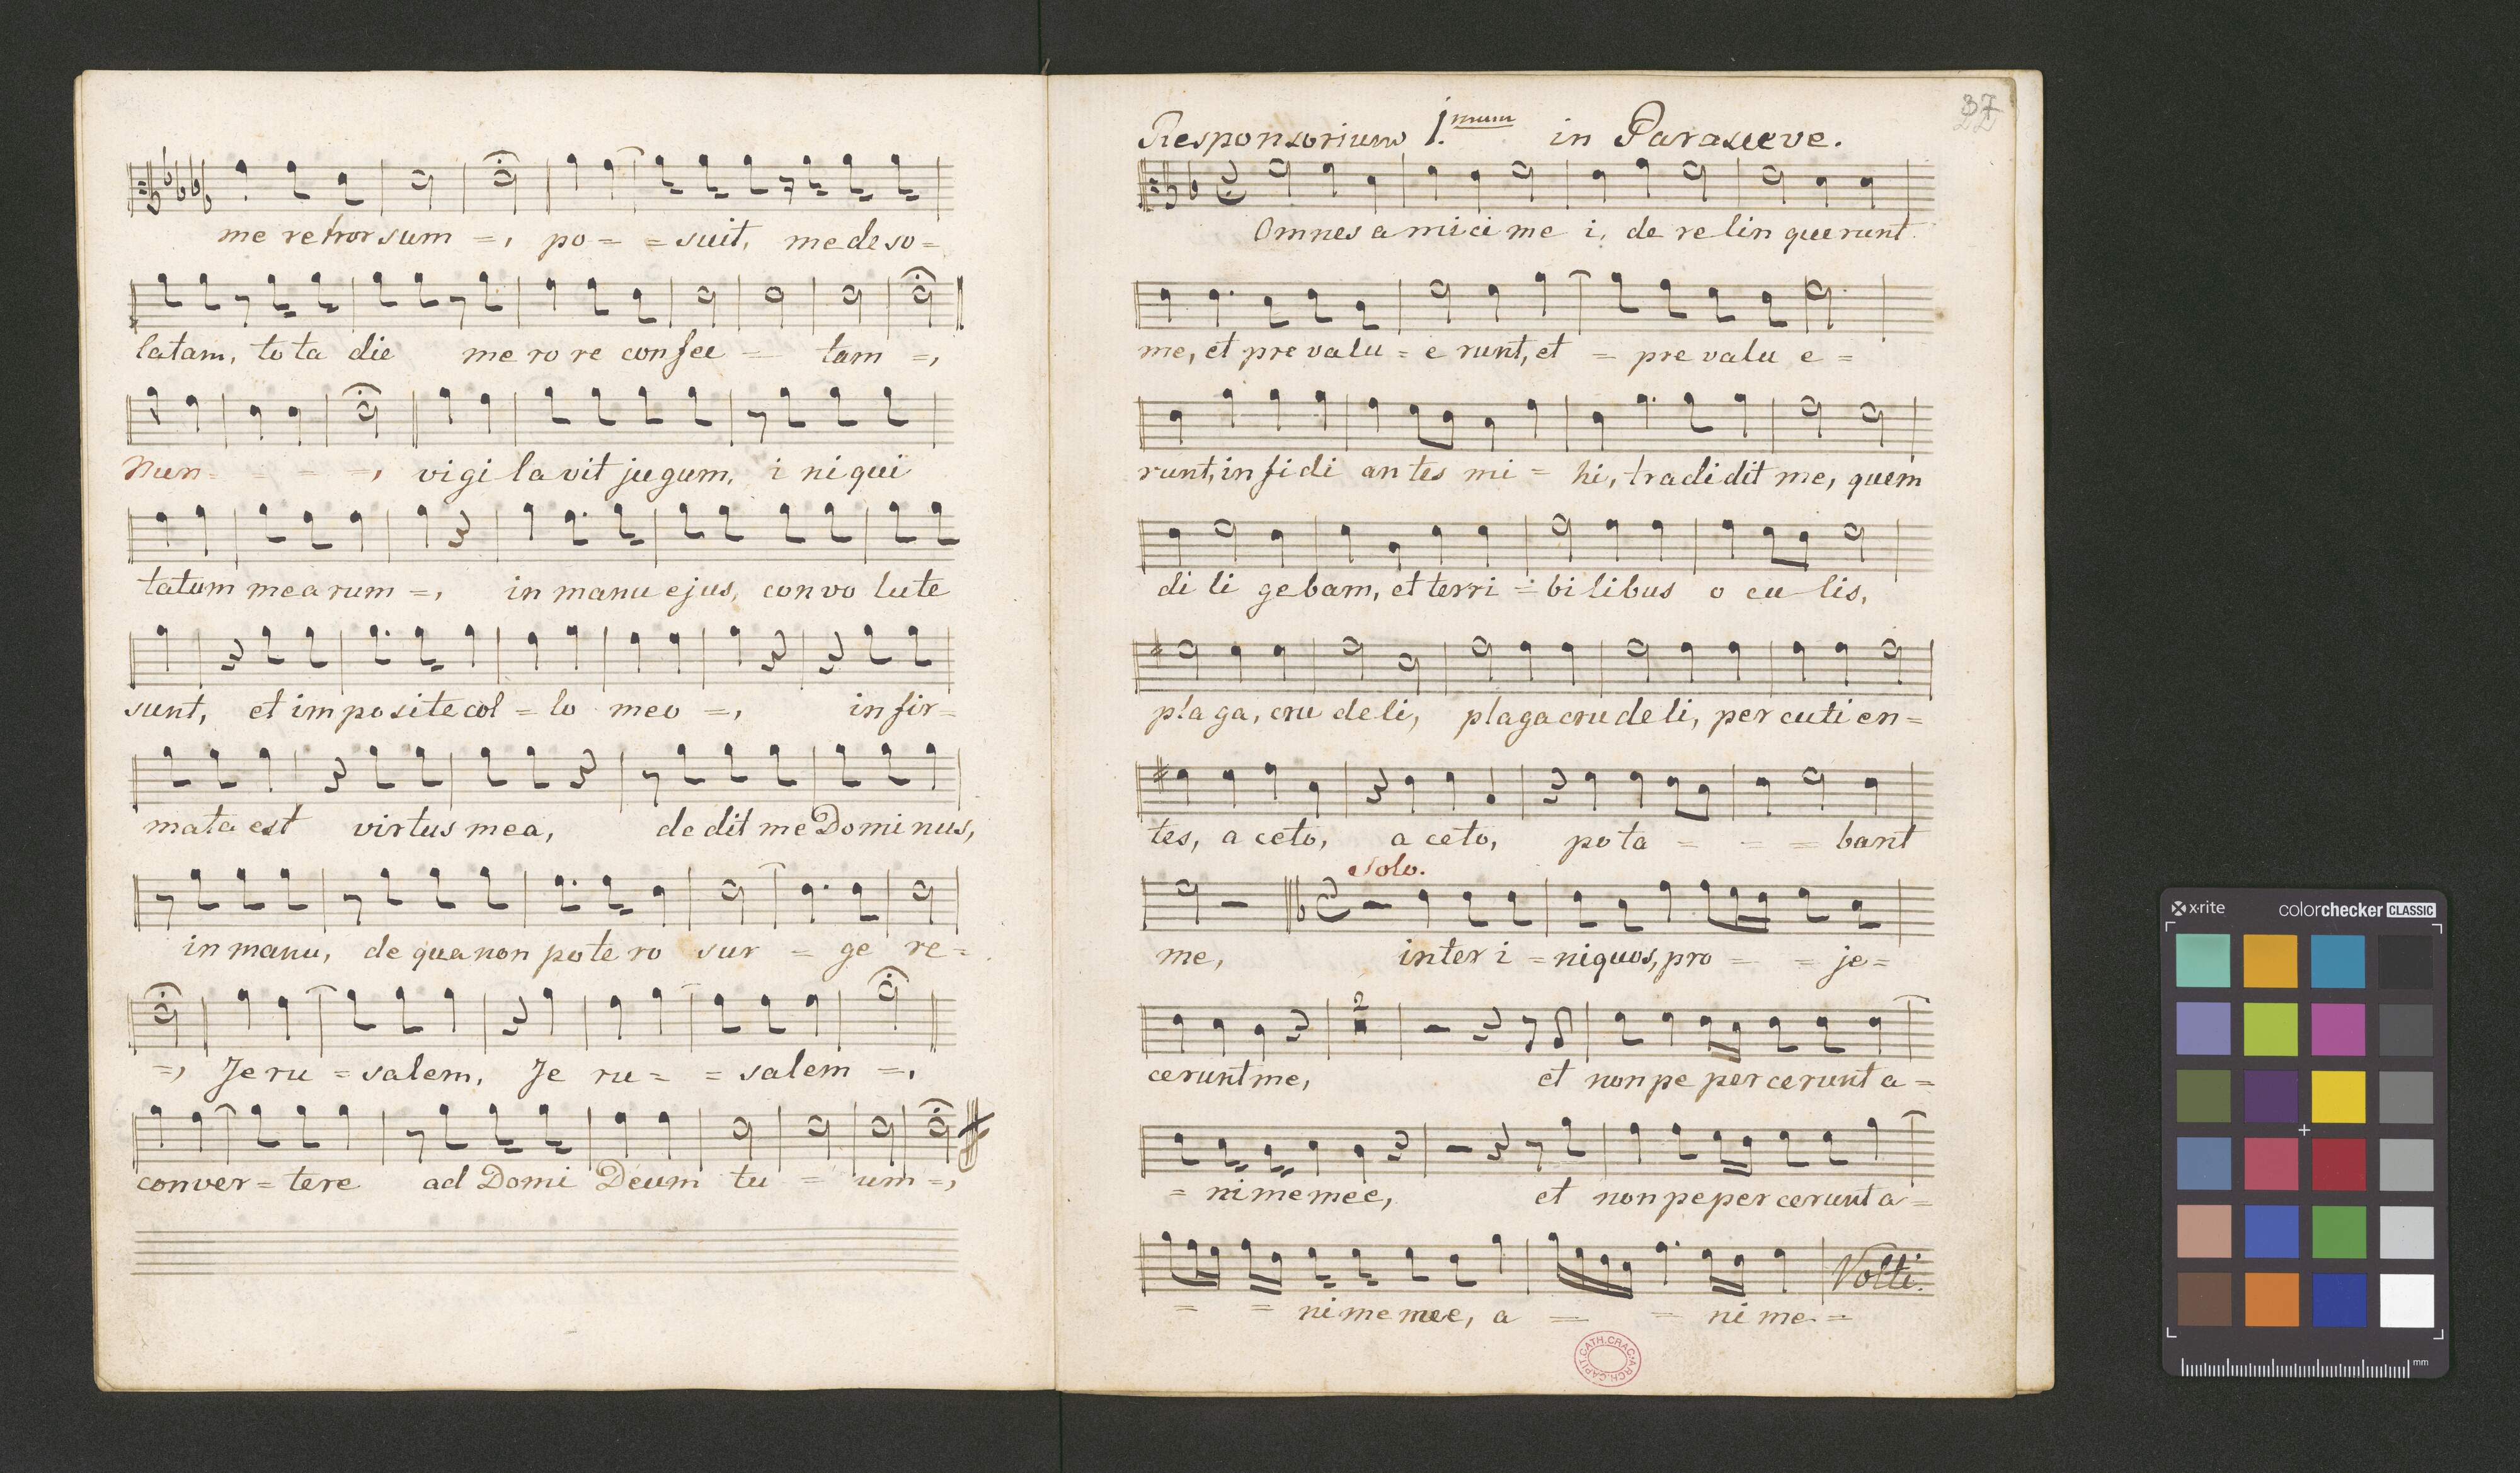 me retrorsum =, po = = suit, me deso =
latam, tota die merore confec = tam =,
Nun = = =, vigilavit jugum, iniqui
tatum mearum =, in manu ejus, convolute
sunt, et imposite col = lo meo =, infir =
mata est virtus mea, dedit me Dominus,
in manu, de qua non potero sur = ge re =
=, Jeru = salem, Je ru = = salem =,
conver = tere ad Domi Deum tu = um =,
37
Responsorium 1.mum in Parasceve.
Omnes amici mei, derelinquerunt
me, et prevalu = erunt, et = prevalu e =
runt, insidi antes mi = hi, tradidit me, quem
diligebam, et terri = bilibus oculis,
plaga, crudeli, plaga crudeli, percutien =
tes, aceto, aceto, pota = = = bant
Solo.
me, inter i = niquos, pro = = je =
2
cerunt me, et non pe percerunt a =
= nime mee, et non pepercerunt a =
= = nime mee, a = = nime =
Volti.
ARCH.CAPIT.CATH.CRAC.
x-rite colorchecker CLASSIC
mm